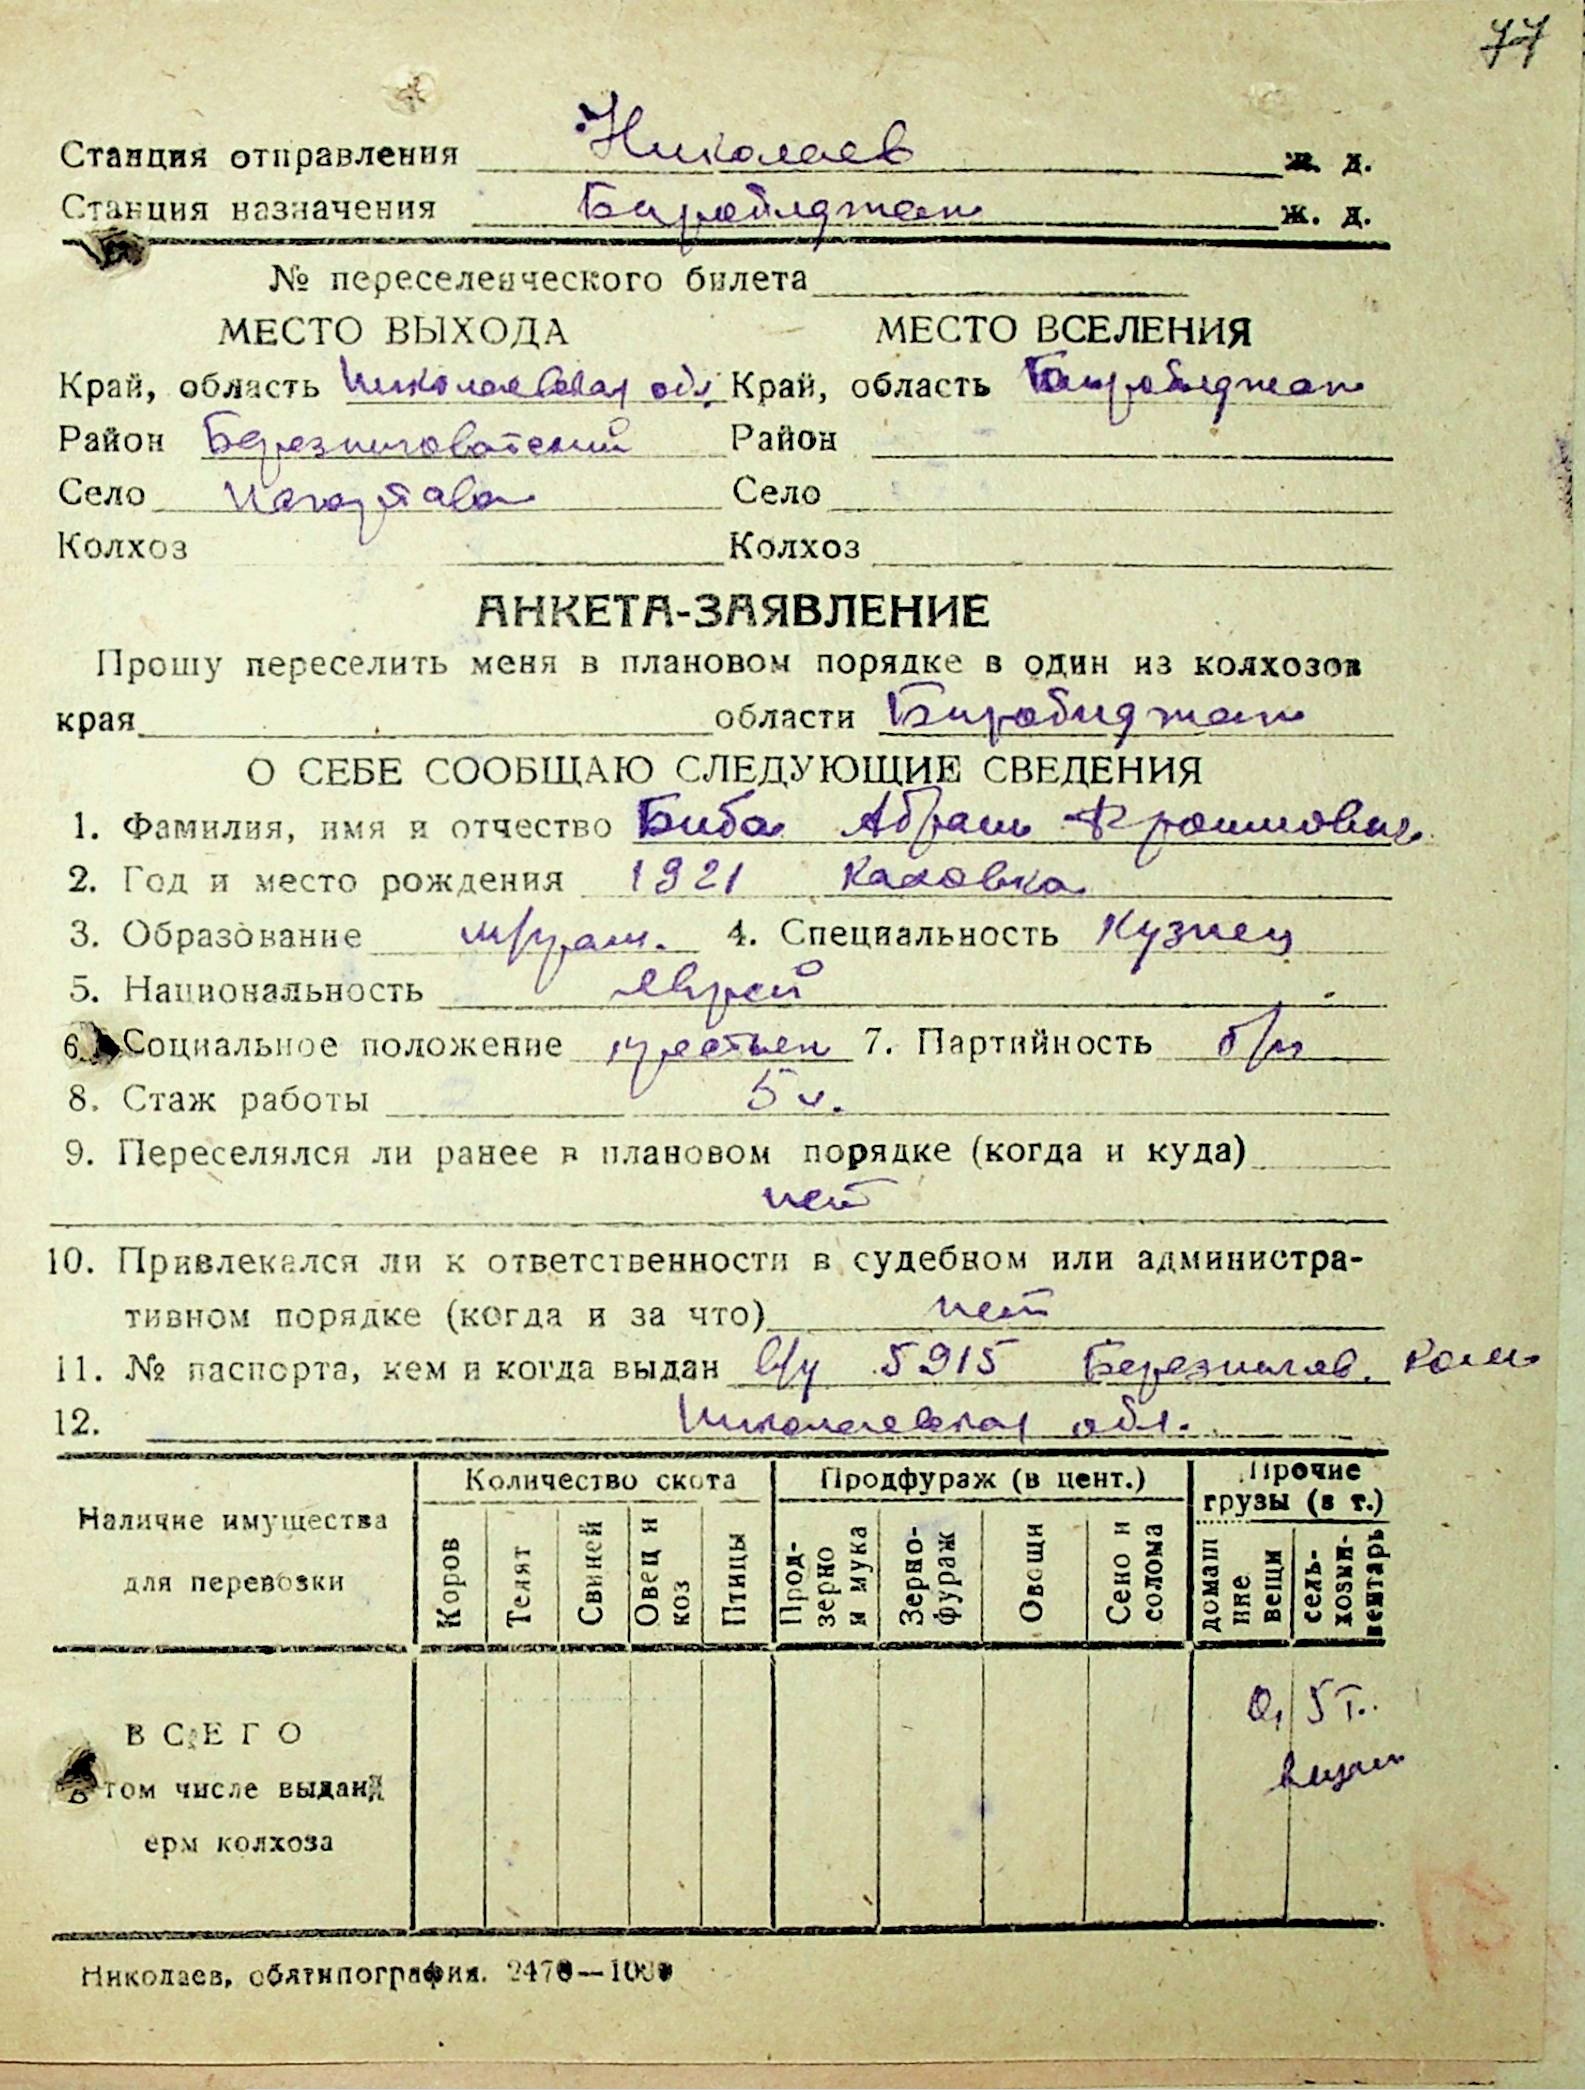 77
Станция отправления Николаев ж. д.
Станция назначения Биробиджан ж. д.
№ переселенческого билета
МЕСТО ВЫХОДА МЕСТО ВСЕЛЕНИЯ
Край, область Николаевская обл. Край, область Биробиджан
Район Березниговатский Район
Село Нагартава Село
Колхоз Колхоз
АНКЕТА-ЗАЯВЛЕНИЕ
Прошу переселить меня в плановом порядке в один из колхозов
края области Биробиджан
О СЕБЕ СООБЩАЮ СЛЕДУЮЩИЕ СВЕДЕНИЯ
1. Фамилия, имя и отчество Биба Абрам
2. Год и место рождения 1921 Каховка
3. Образование м/грам. 4. Специальность Кузнец
5. Национальность Еврей
6. Социальное положение 7. Партийность б/п
8. Стаж работы 5 л.
9. Переселялся ли ранее в плановом порядке (когда и куда)
нет
10. Привлекался ли к ответственности в судебном или администра-
тивном порядке (когда и за что) нет
11. № паспорта, кем и когда выдан 5915
12. Николаевская обл.
Наличие имущества для перевозки
Количество скота Продфураж (в цент.) Прочие грузы (в т.)
Коров Телят Свиней Овец и коз Птицы Прод-зерно и мука Зерно-фураж Овощи Сено и солома домашние вещи сель-хозин-вентарь
ВСЕГО 0,5 т.
том числе выдан
ерм колхоза
Николаев, облтипография.